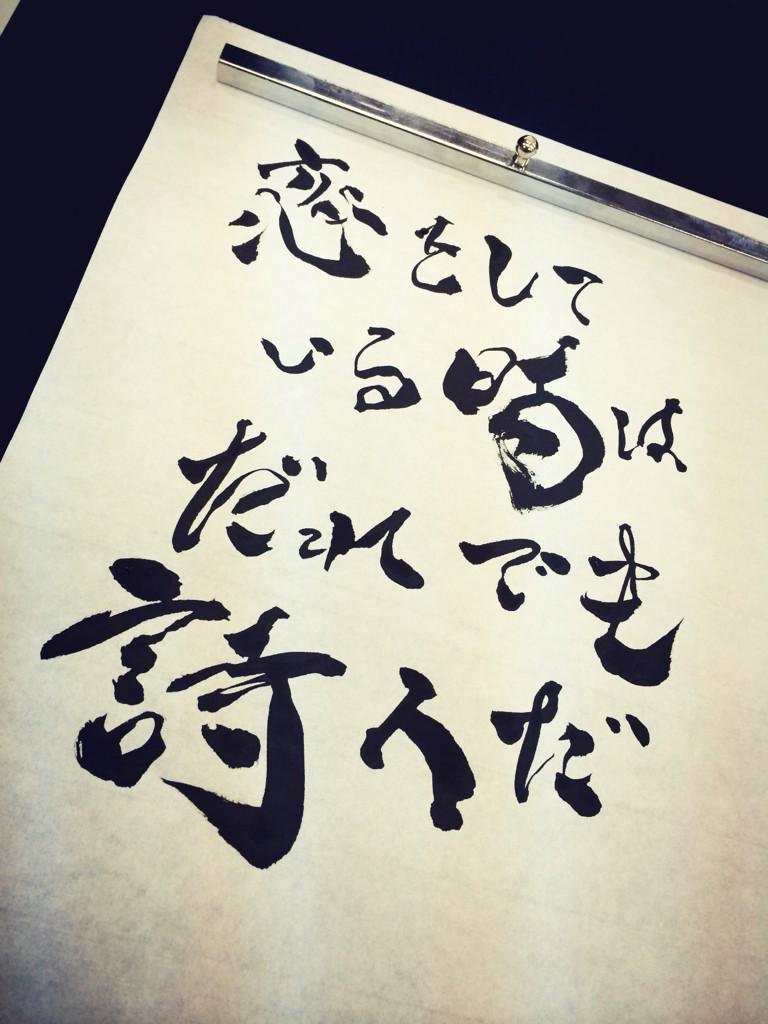 恋をして
いる時は
だれでも
詩人だ